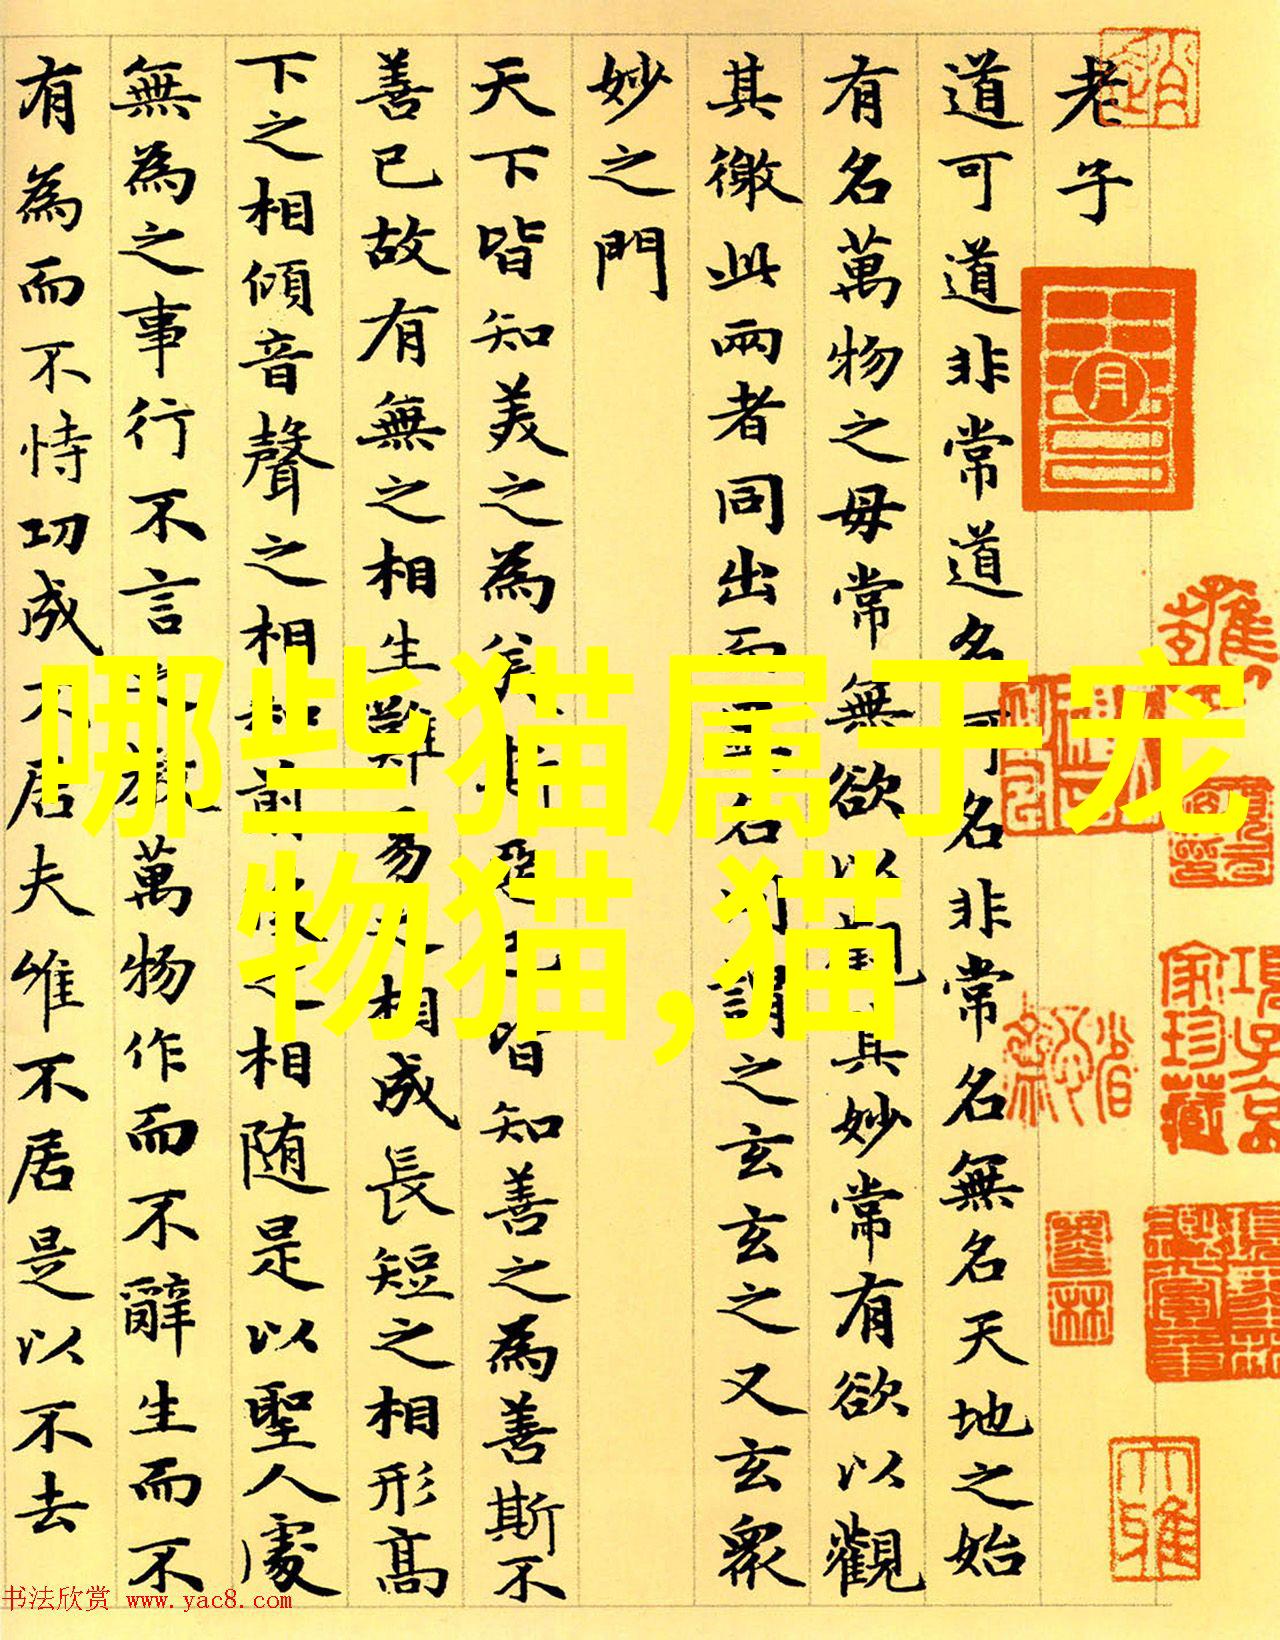 老子
道可道非常道名可名非常名無名天地之始
有名萬物之母常無欲以觀其妙常有欲以觀
其徼此兩者同出而異名同謂之玄玄之又玄衆
妙之門
天下皆知美之為美斯惡已皆知善之為善斯不
善已故有無之相生難易之相成長短之相形高
下之相傾音聲之相和前後之相随是以聖人處
無為之事行不言之教萬物作而不辭生而不
有為而不恃功成不居夫唯不居是以不去
哪些猫属于宠
物猫,猫
項子京
家珍藏
书法欣赏 www.yac8.com